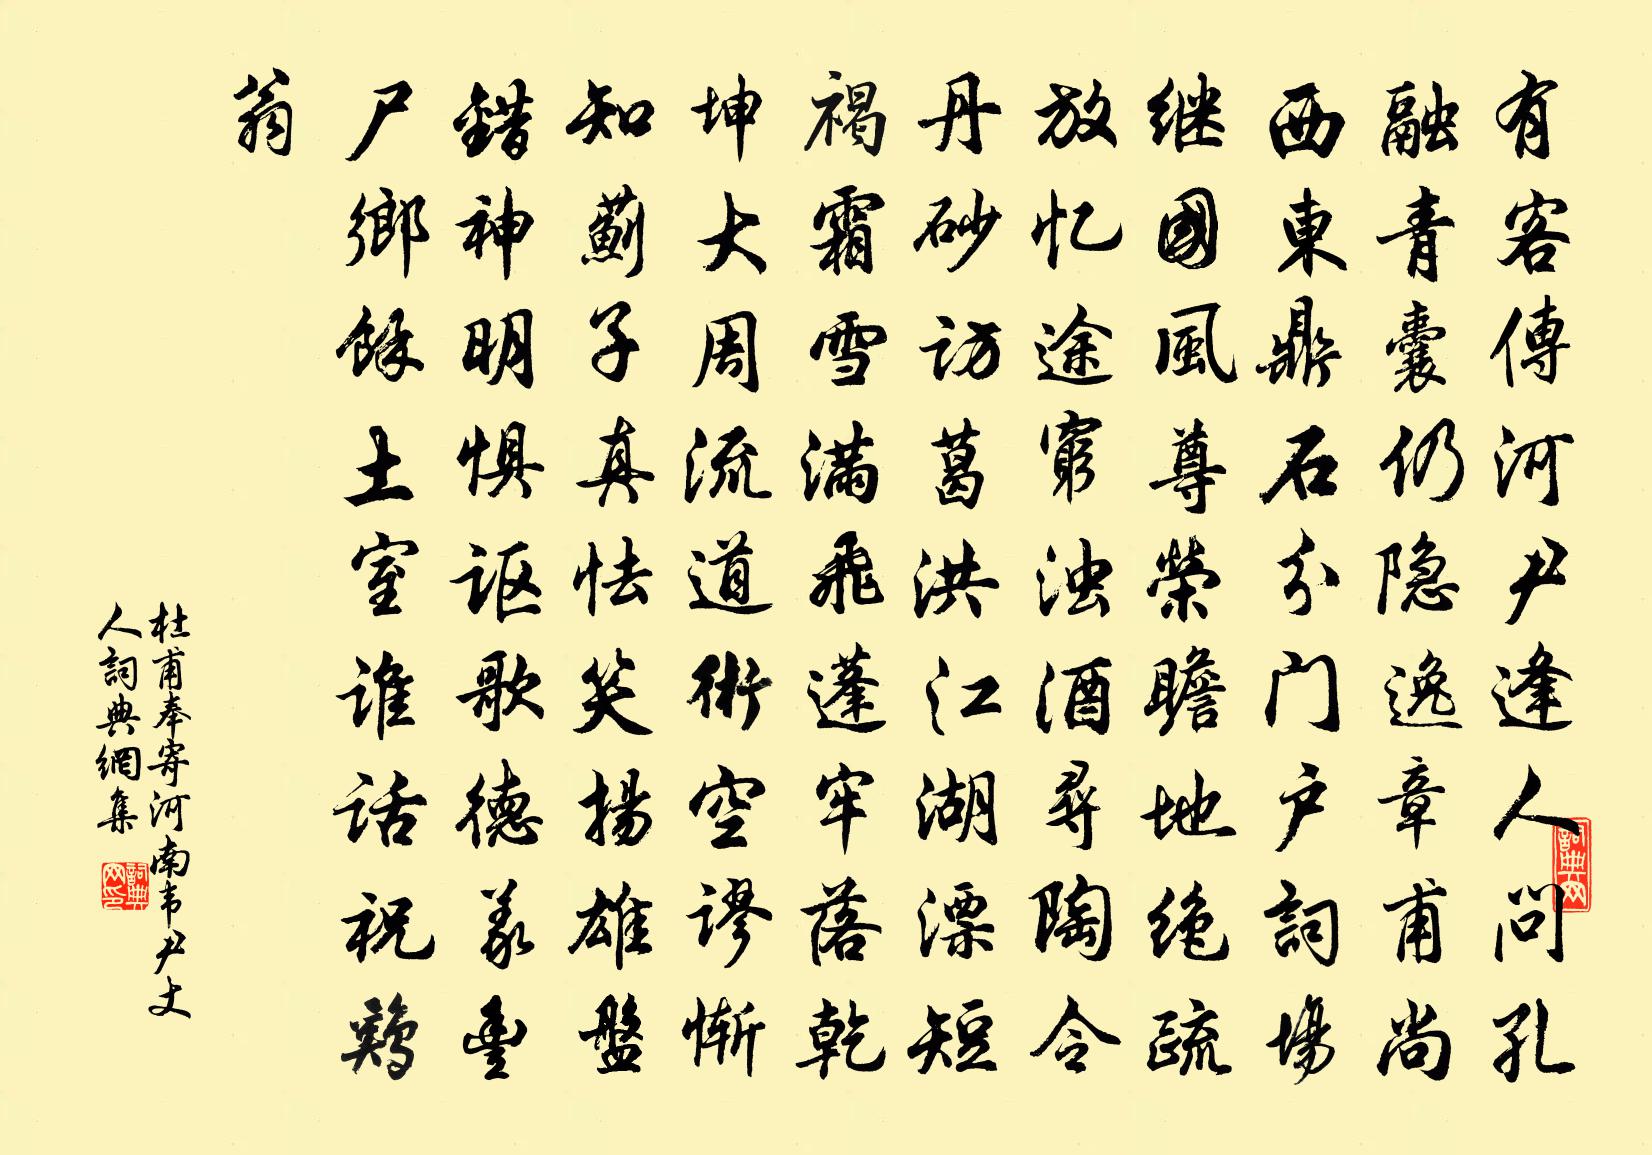 有客傳河尹逢人問孔
融青囊仍隐逸章甫尚
西東鼎石分门户詞場
继國風尊榮瞻地绝疏
放忆途窮浊酒尋陶令
丹砂访葛洪江湖漂短
褐霜雪满飛蓬牢落乾
坤大周流道術空谬惭
知薊子真怯笑揚雄盤
錯神明惧讴歌德義豊
尸鄉餘土室谁话祝鷄
翁
杜甫奉寄河南韦尹丈
人詞典網集
詞典网
詞典网印